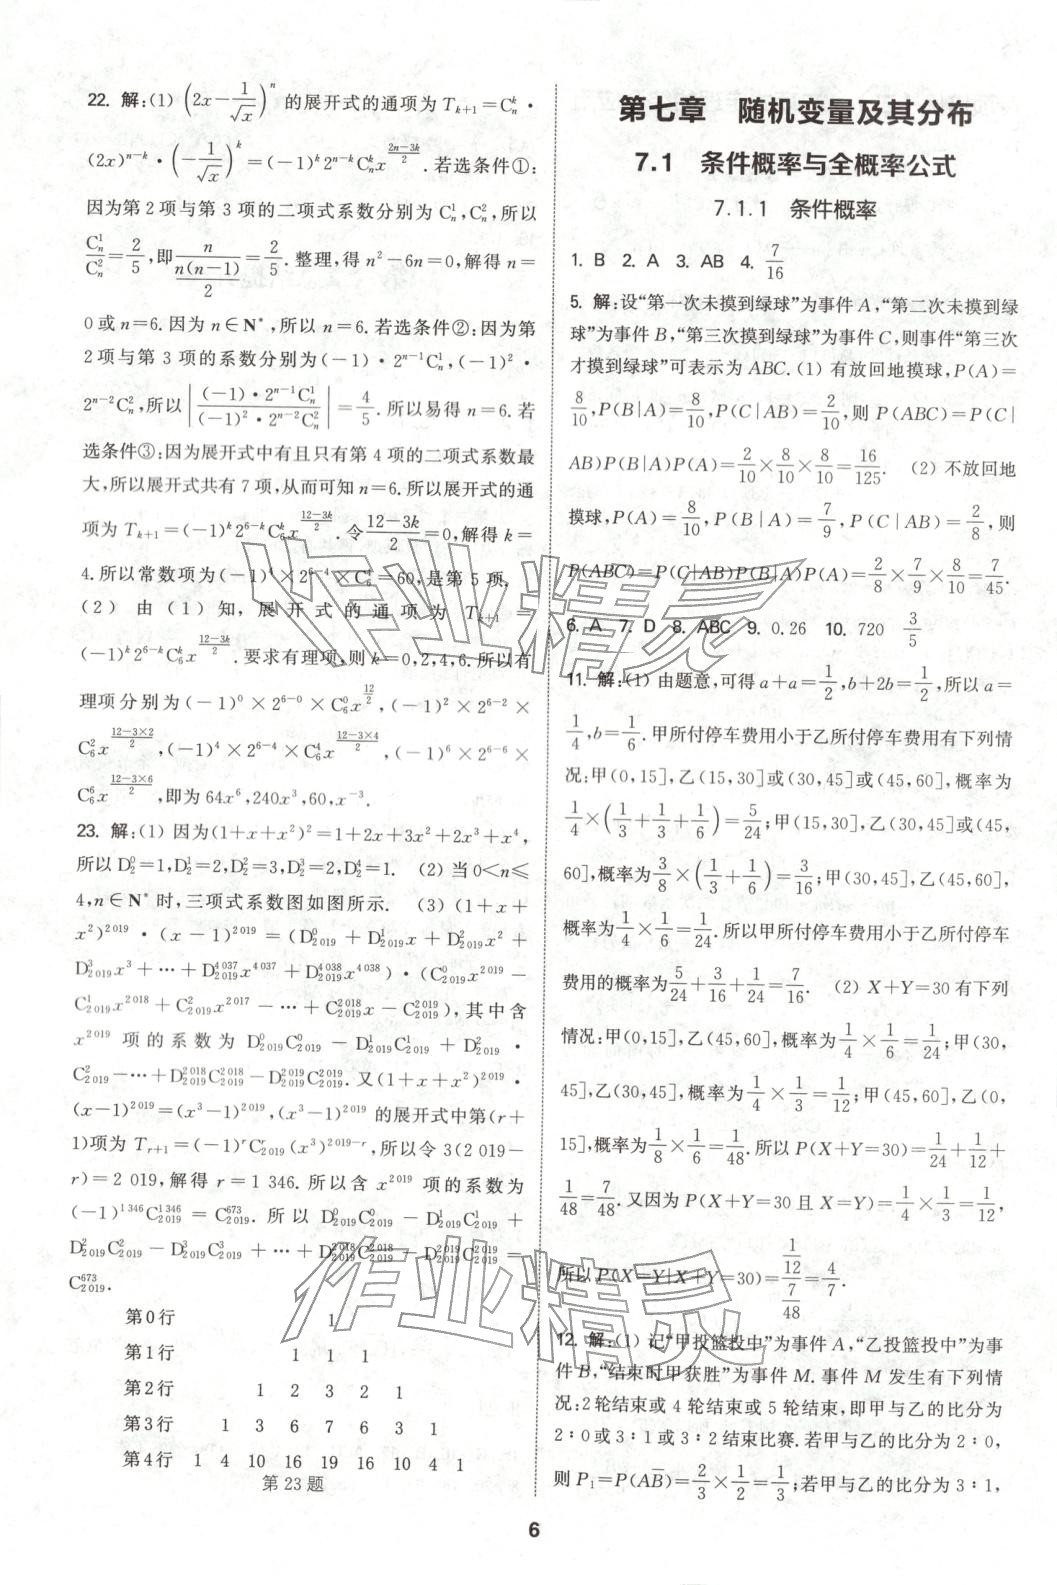 22. 解:(1) (2x−1/√x)^n 的展开式的通项为 T_{k+1}=C_n^k·
(2x)^{n−k}·(−1/√x)^k=(−1)^k 2^{n−k}C_n^k x^{(2n−3k)/2}.若选条件①:
因为第2项与第3项的二项式系数分别为 C_n^1,C_n^2,所以
C_n^1/C_n^2=2/5,即 n/(n(n−1)/2)=2/5.整理,得 n²−6n=0,解得 n=
0或n=6.因为 n∈N*,所以 n=6.若选条件②:因为第
2项与第3项的系数分别为(−1)·2^{n−1}C_n^1,(−1)²·
2^{n−2}C_n^2,所以|(−1)·2^{n−1}C_n^1/((−1)²·2^{n−2}C_n^2)|=4/5.所以易得 n=6.若
选条件③:因为展开式中有且只有第4项的二项式系数最
大,所以展开式共有7项,从而可知 n=6.所以展开式的通
项为 T_{k+1}=(−1)^k 2^{6−k}C_6^k x^{(12−3k)/2}.令(12−3k)/2=0,解得 k=
4.所以常数项为(−1)^4×2^{6−4}×C_6^4=60,是第5项.
(2) 由(1)知,展开式的通项为 T_{k+1}=
(−1)^k 2^{6−k}C_6^k x^{(12−3k)/2}.要求有理项,则 k=0,2,4,6.所以有
理项分别为(−1)^0×2^{6−0}×C_6^0 x^{12/2},(−1)²×2^{6−2}×
C_6^2 x^{(12−3×2)/2},(−1)^4×2^{6−4}×C_6^4 x^{(12−3×4)/2},(−1)^6×2^{6−6}×
C_6^6 x^{(12−3×6)/2},即为 64x^6,240x³,60,x^{−3}.
23. 解:(1) 因为(1+x+x²)²=1+2x+3x²+2x³+x^4,
所以 D_2^0=1,D_2^1=2,D_2^2=3,D_2^3=2,D_2^4=1. (2) 当0<n≤
4,n∈N*时,三项式系数图如图所示. (3) (1+x+
x²)^{2 019}·(x−1)^{2 019}=(D_{2 019}^0+D_{2 019}^1x+D_{2 019}^2x²+
D_{2 019}^3x³+…+D_{2 019}^{4 037}x^{4 037}+D_{2 019}^{4 038}x^{4 038})·(C_{2 019}^0x^{2 019}−
C_{2 019}^1x^{2 018}+C_{2 019}^2x^{2 017}−…+C_{2 019}^{2 018}x−C_{2 019}^{2 019}),其中含
x^{2 019} 项的系数为 D_{2 019}^0C_{2 019}^0−D_{2 019}^1C_{2 019}^1+D_{2 019}^2·
C_{2 019}^2−…+D_{2 019}^{2 018}C_{2 019}^{2 018}−D_{2 019}^{2 019}C_{2 019}^{2 019}.又(1+x+x²)^{2 019}·
(x−1)^{2 019}=(x³−1)^{2 019},(x³−1)^{2 019} 的展开式中第(r+
1)项为 T_{r+1}=(−1)^rC_{2 019}^r(x³)^{2 019−r},所以令 3(2 019−
r)=2 019,解得 r=1 346.所以含 x^{2 019} 项的系数为
(−1)^{1 346}C_{2 019}^{1 346}=C_{2 019}^{673}.所以 D_{2 019}^0C_{2 019}^0−D_{2 019}^1C_{2 019}^1+
D_{2 019}^2C_{2 019}^2−D_{2 019}^3C_{2 019}^3+…+D_{2 019}^{2 018}C_{2 019}^{2 018}−D_{2 019}^{2 019}C_{2 019}^{2 019}=
C_{2 019}^{673}.
第0行 1
第1行 1 1 1
第2行 1 2 3 2 1
第3行 1 3 6 7 6 3 1
第4行 1 4 10 16 19 16 10 4 1
第23题
第七章 随机变量及其分布
7.1 条件概率与全概率公式
7.1.1 条件概率
1. B 2. A 3. AB 4. 7/16
5. 解:设“第一次未摸到绿球”为事件A,“第二次未摸到绿
球”为事件B,“第三次摸到绿球”为事件C,则事件“第三次
才摸到绿球”可表示为ABC.(1) 有放回地摸球,P(A)=
8/10,P(B|A)=8/10,P(C|AB)=2/10,则 P(ABC)=P(C|
AB)P(B|A)P(A)=2/10×8/10×8/10=16/125. (2) 不放回地
摸球,P(A)=8/10,P(B|A)=7/9,P(C|AB)=2/8,则
P(ABC)=P(C|AB)P(B|A)P(A)=2/8×7/9×8/10=7/45.
6. A 7. D 8. ABC 9. 0.26 10. 720 3/5
11. 解:(1) 由题意,可得 a+a=1/2,b+2b=1/2,所以 a=
1/4,b=1/6.甲所付停车费用小于乙所付停车费用有下列情
况:甲(0,15],乙(15,30]或(30,45]或(45,60],概率为
1/4×(1/3+1/3+1/6)=5/24;甲(15,30],乙(30,45]或(45,
60],概率为3/8×(1/3+1/6)=3/16;甲(30,45],乙(45,60],
概率为1/4×1/6=1/24.所以甲所付停车费用小于乙所付停车
费用的概率为5/24+3/16+1/24=7/16. (2) X+Y=30 有下列
情况:甲(0,15],乙(45,60],概率为1/4×1/6=1/24;甲(30,
45],乙(30,45],概率为1/4×1/3=1/12;甲(45,60],乙(0,
15],概率为1/8×1/6=1/48.所以 P(X+Y=30)=1/24+1/12+
1/48=7/48.又因为 P(X+Y=30 且 X=Y)=1/4×1/3=1/12,
所以 P(X=Y|X+Y=30)=(1/12)/(7/48)=4/7.
12. 解:(1) 记“甲投篮投中”为事件A,“乙投篮投中”为事
件B,“结束时甲获胜”为事件M.事件M发生有下列情
况:2轮结束或4轮结束或5轮结束,即甲与乙的比分为
2∶0或3∶1或3∶2结束比赛.若甲与乙的比分为2∶0,
则 P₁=P(AB̅)=2/3×1/2=1/3;若甲与乙的比分为3∶1,
6
作业精灵
作业精灵